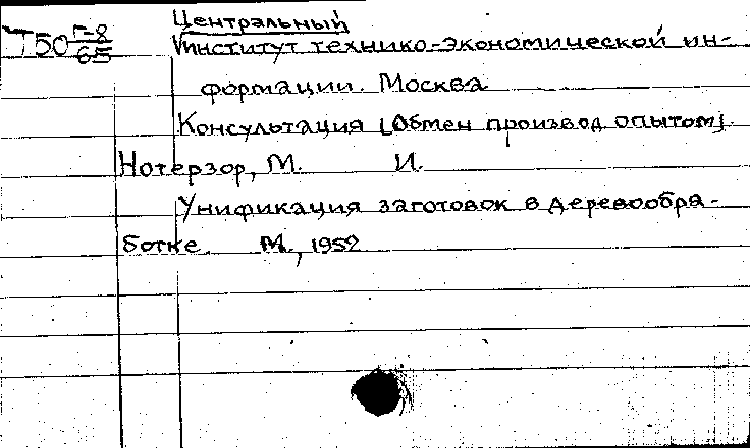 Центральный
Т50 Г-8/65 Институт технико-экономической ин-
формации. Москва
Консультация [Обмен производ. опытом].
Нотерзор, М. И.
Унификация заготовок в деревообра-
ботке. М., 1952